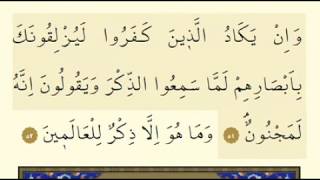 وَاِنْ يَكَادُ الَّذٖينَ كَفَرُوا لَيُزْلِقُونَكَ
بِاَبْصَارِهِمْ لَمَّا سَمِعُوا الذِّكْرَ وَيَقُولُونَ اِنَّهُ
لَمَجْنُونٌۘ ٥١ وَمَا هُوَ اِلَّا ذِكْرٌ لِلْعَالَمٖينَ ٥٢